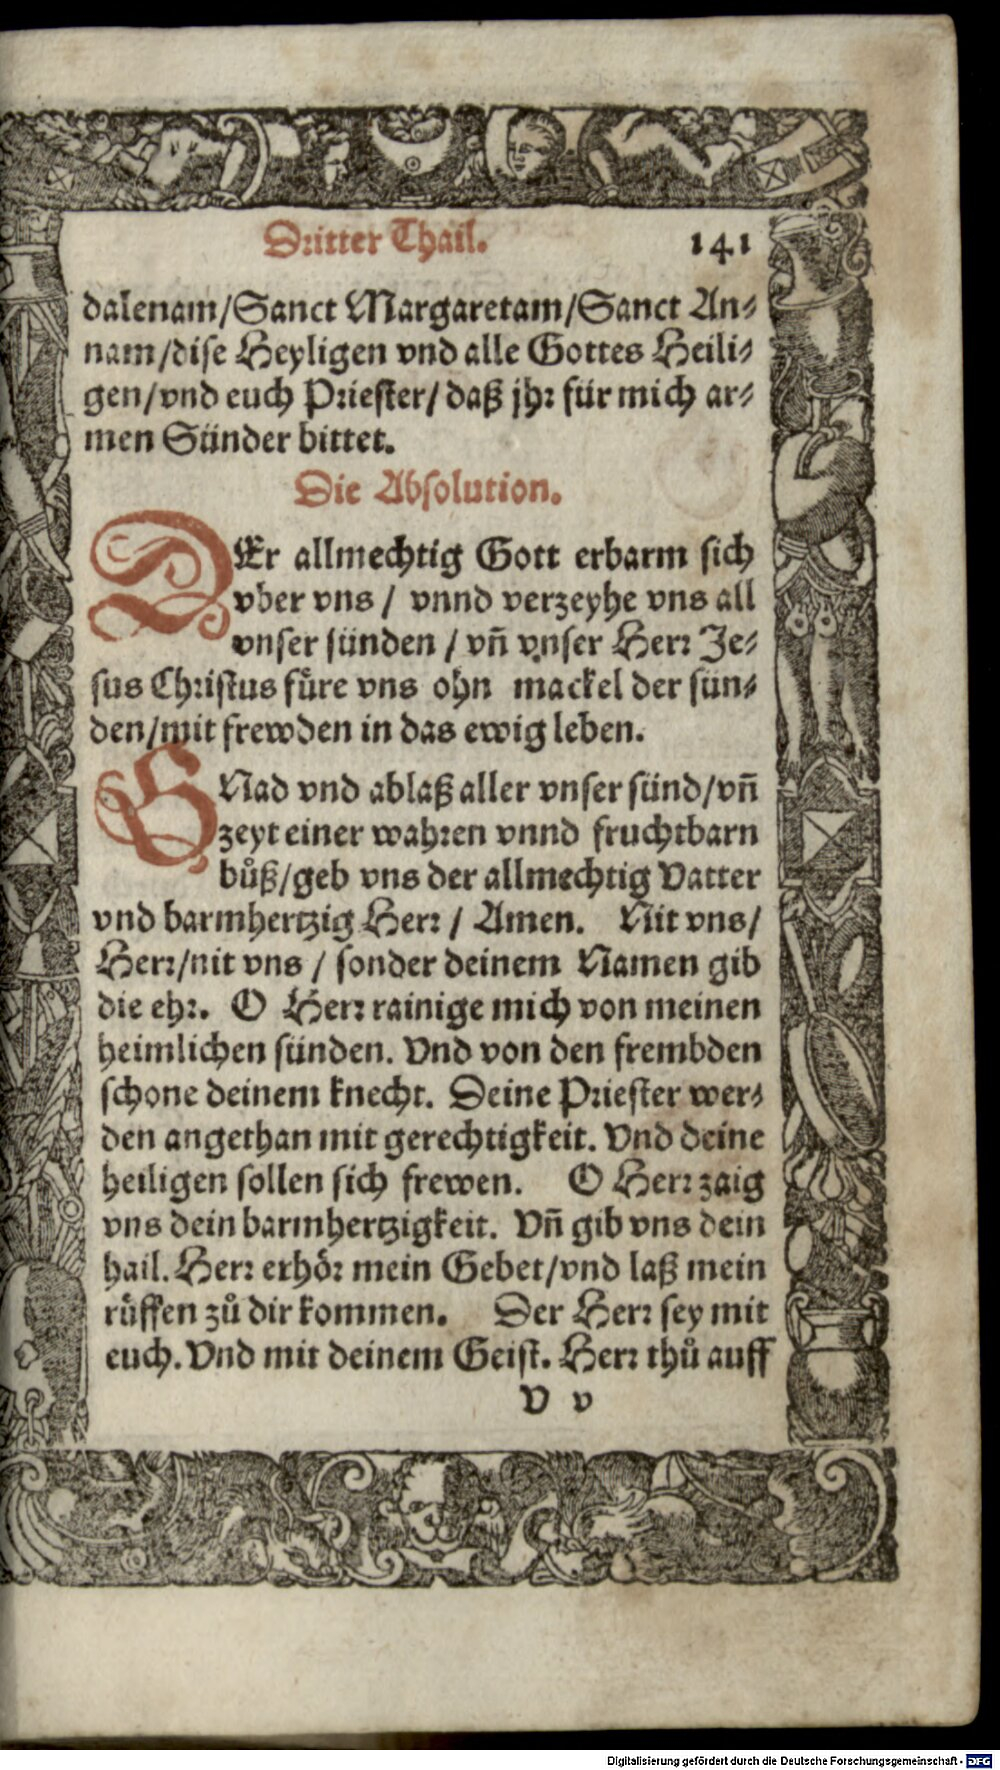 Dritter Thail. 141
dalenam/Sanct Margaretam/Sanct An⸗
nam/dise Heyligen vnd alle Gottes Heili⸗
gen/vnd euch Priester/daß jhr für mich ar⸗
men Sünder bittet.
Die Absolution.
DEr allmechtig Gott erbarm sich
vber vns / vnnd verzeyhe vns all
vnser sünden / vñ vnser Herr Je⸗
sus Christus füre vns ohn mackel der sün⸗
den/mit frewden in das ewig leben.
GNad vnd ablaß aller vnser sünd/vñ
zeyt einer wahren vnnd fruchtbarn
bůß/geb vns der allmechtig Vatter
vnd barmhertzig Herr / Amen. Nit vns/
Herr/nit vns / sonder deinem Namen gib
die ehr. O Herr rainige mich von meinen
heimlichen sünden. Vnd von den frembden
schone deinem knecht. Deine Priester wer⸗
den angethan mit gerechtigkeit. Vnd deine
heiligen sollen sich frewen. O Herr zaig
vns dein barmhertzigkeit. Vñ gib vns dein
hail. Herr erhör mein Gebet/vnd laß mein
rüffen zů dir kommen. Der Herr sey mit
euch. Vnd mit deinem Geist. Herr thů auff
V v
Digitalisierung gefördert durch die Deutsche Forschungsgemeinschaft - DFG